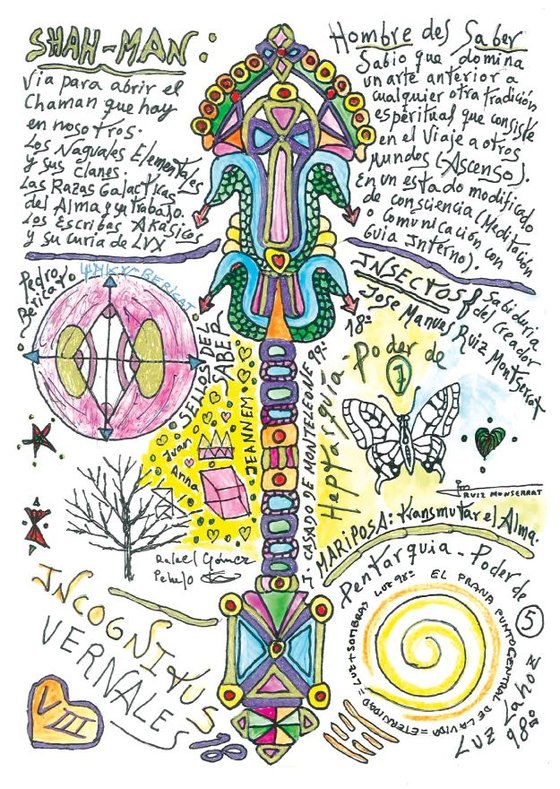 SHAH-MAN:
Via para abrir el
Chaman que hay
en nosotros.
Los Naguales Elementales
y sus clanes.
Las Razas Galacticas
del Alma y su trabajo.
Los Escribas Akasicos
y su curia de LVX
Hombre del Saber
Sabio que domina
un arte anterior a
cualquier otra tradición
espiritual que consiste
en el Viaje a otros
Mundos (Ascenso).
En un estado modificado
de consciencia (Meditación
o comunicación con
Guia Interno).
Pedro
Bericat
BERICAT
SELLOS DEL
SABER
INSECTOS
Sabiduria
del Creador
Jose Manuel Ruiz Montserrat
18ª
Heptarquia-Poder de
7
JEANNEM
CASA DE MONTELEONE
Juan
Anha
RUIZ MONSERRAT
MARIPOSA: Transmutar el Alma.
Rafael Gómez
INCOGNITUS
VERNALES
VIII
18
Pentarquia-Poder de
5
EL PRANA PUNTO CENTRAL DE LA VIDA = ETERNIDAD = LUZ + SOMBRAS
98ª